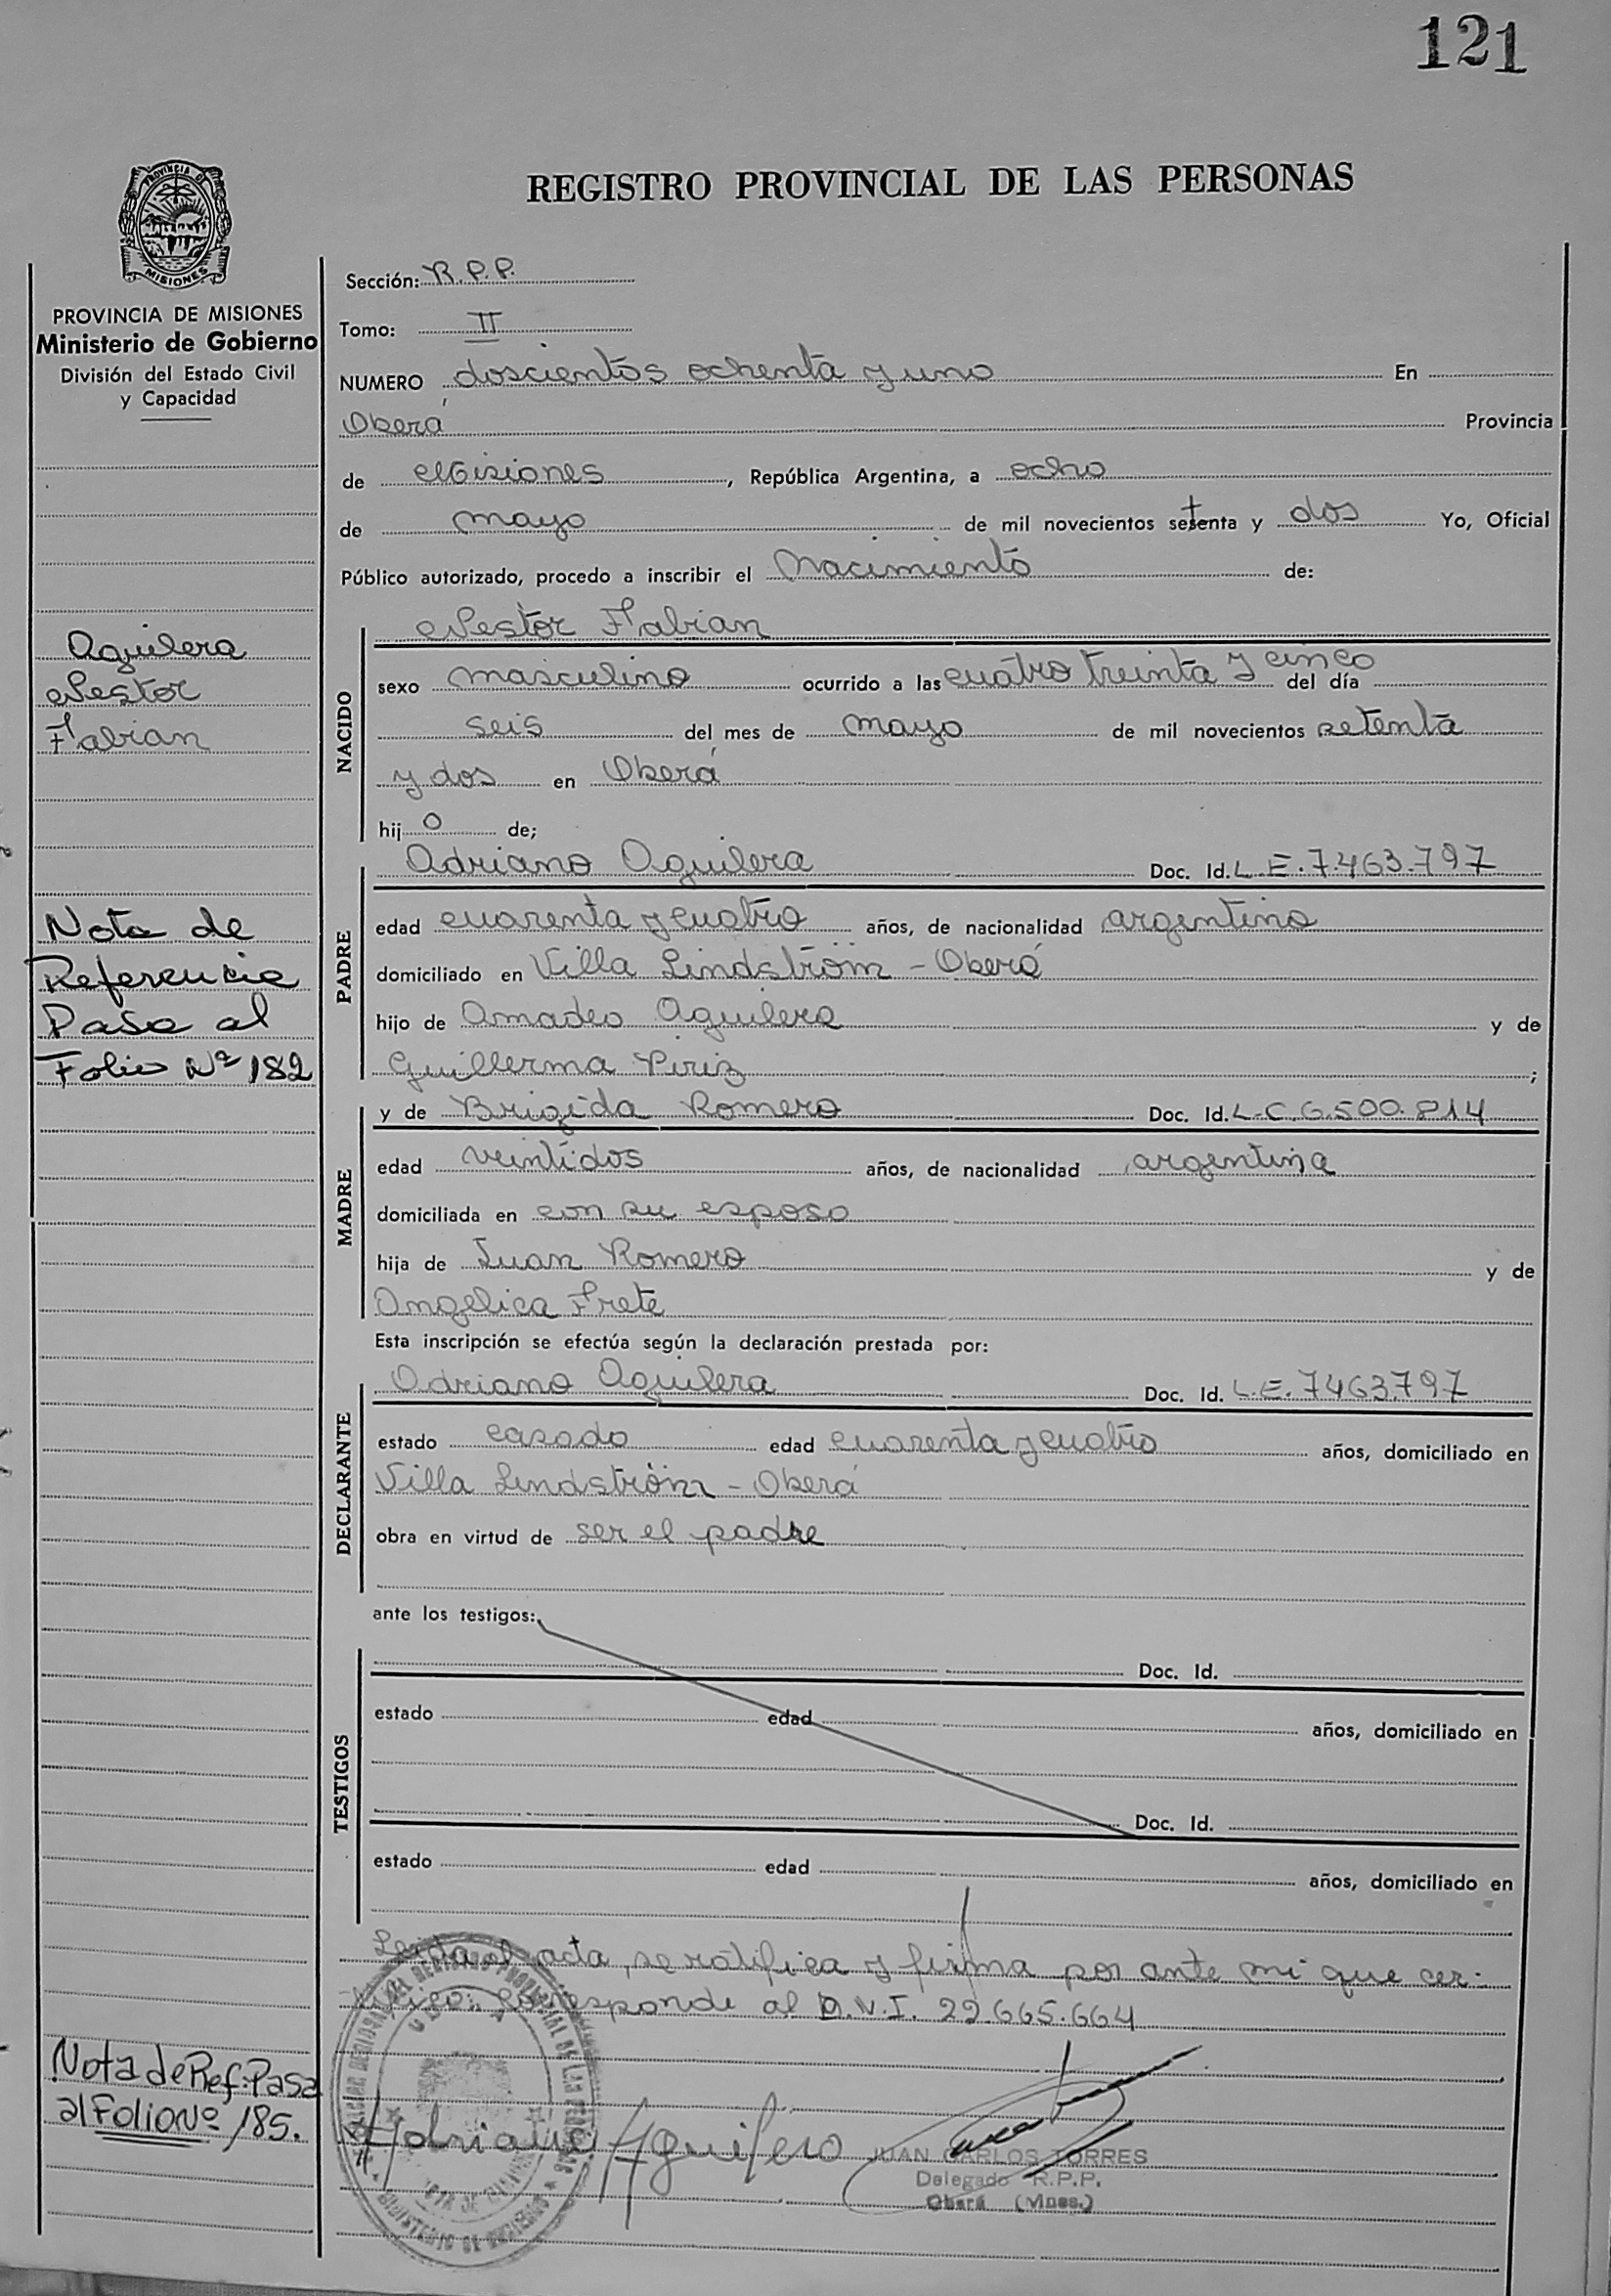 121
REGISTRO PROVINCIAL DE LAS PERSONAS
PROVINCIA DE
MISIONES
PROVINCIA DE MISIONES
Ministerio de Gobierno
División del Estado Civil
y Capacidad
Aguilera
Nestor
Fabian
Nota de
Referencia
Pasa al
Folio Nº 182
Nota de Ref: Pasa
al Folio Nº 185.
Sección: R.P.P.
Tomo: II
NUMERO doscientos ochenta y uno En
Oberá Provincia
de Misiones, República Argentina, a ocho
de mayo de mil novecientos setenta y dos Yo, Oficial
Público autorizado, procedo a inscribir el Nacimiento de:
NACIDO
Nestor Fabian
sexo masculino ocurrido a las cuatro treinta y cinco del día
seis del mes de mayo de mil novecientos setenta
y dos en Oberá
hijo de;
PADRE
Adriano Aguilera Doc. Id. L.E. 7.463.797
edad cuarenta y cuatro años, de nacionalidad argentino
domiciliado en Villa Lindström - Oberá
hijo de Amadeo Aguilera y de
Guillerma Piriz ;
MADRE
y de Brigida Romero Doc. Id. L.C. 6.500.814
edad veintidos años, de nacionalidad argentina
domiciliada en con su esposo
hija de Juan Romero y de
Angelica Frete
Esta inscripción se efectúa según la declaración prestada por:
DECLARANTE
Adriano Aguilera Doc. Id. L.E. 7463.797
estado casado edad cuarenta y cuatro años, domiciliado en
Villa Lindström - Oberá
obra en virtud de ser el padre
ante los testigos:
TESTIGOS
Doc. Id.
estado edad años, domiciliado en
Doc. Id.
estado edad años, domiciliado en
Leida el acta, se ratifica y firma por ante mi que cer-
tifico: Corresponde al D.N.I. 22.665.664
Adriano Aguilera
JUAN CARLOS TORRES
Delegado R.P.P.
Oberá (Mnes.)